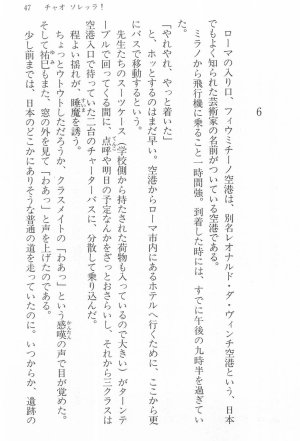 47 チャオ ソレッラ!
6
ローマの入り口、フィウミチーノ空港は、別名レオナルド・ダ・ヴィンチ空港という、日本
でもよく知られた芸術家の名前がついている空港である。
ミラノから飛行機に乗ること一時間強。到着した時には、すでに午後の九時半を過ぎてい
た。
「やれやれ、やっと着いた」
と、ホッとするのはまだ早い。空港からローマ市内にあるホテルへ行くために、ここから更
にバスで移動するという。
先生たちのスーツケース(学校側から持たされた荷物も入っているので大きい)がターンテ
ーブルで回ってくる間に、点呼や明日の予定なんかをざっとおさらいし、それから三クラスは
空港入口で待っていた二台のチャーターバスに、分散して乗り込んだ。
程よい揺れが、睡魔を誘う。
ちょっとウトウトしただろうか、クラスメイトの「わあっ」という感嘆の声で目が覚めた。
そして祐巳もまた、窓の外を見て「わあっ」と声を上げたのである。
少し前までは、日本のどこかにありそうな普通の道を走っていたのに。いつからか、遺跡の